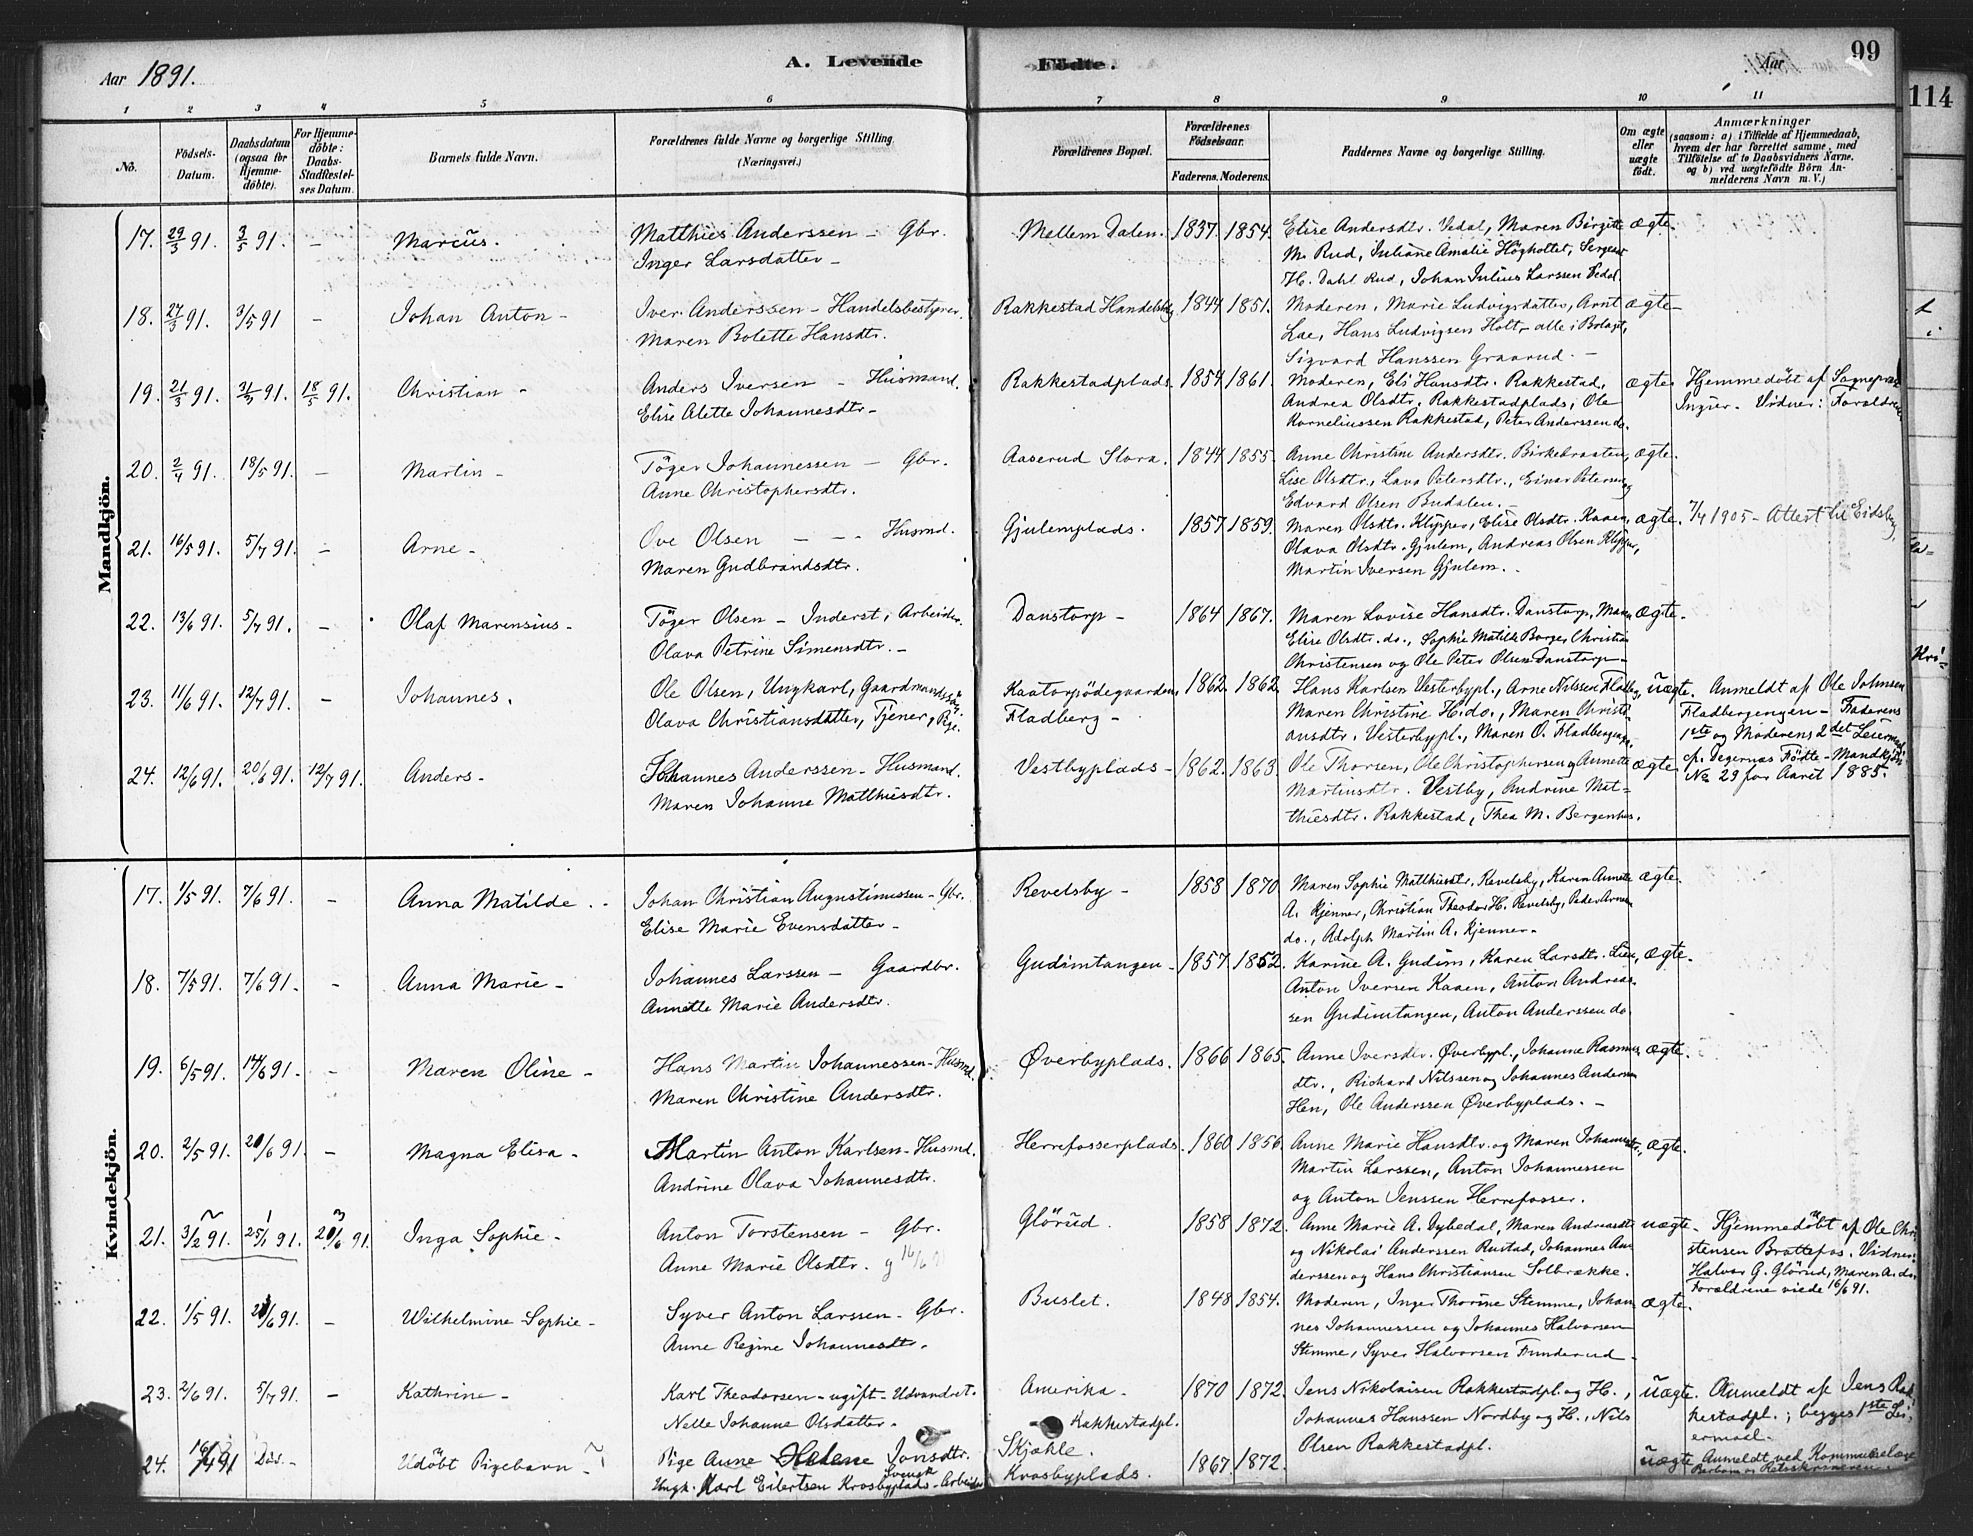 Aar 1891. A. Levende Födte. Aar 99
114
1 2 3 4 5 6 7 8 9 10 11
No. Födsels-Datum. Daabsdatum (ogsaa for Hjemme-döbte). For Hjemme-döbte: Daabs-Stadfæstel-ses Datum. Barnets fulde Navn. Forældrenes fulde Navne og borgerlige Stilling (Næringsvei.) Forældrenes Bopæl. Forældrenes Födselsaar. Faderens. Moderens. Faddernes Navne og borgerlige Stilling. Om ægte eller uægte födt. Anmærkninger (saasom: a) i Tilfælde af Hjemmedaab, hvem der har forrettet samme, med Tilföielse af to Daabsvidners Navne, og b) ved uægtefödte Börn Anmelderens Navn m. V.)
Mandkjön.
17. 29/3 91. 3/5 91. - Marcus. Matthies Anderssen - Gbr. Mellem Dalen. 1837. 1854. Elise Andersdtr. Vedal, Maren Birgitte ægte.
Inger Larsdatter - M. Rud, Juliane Amalie Höghottet, Sergeant
H. Dahl Rud, Johan Julius Larssen Vedal.
18. 27/3 91. 3/5 91 - Johan Anton - Iver Anderssen - Handelsbestyrer. Rakkestad Handelsbg 1844 1851. Moderen, Marie Ludvigsdatter, Arnt ægte -
Maren Bolette Hansdtr. Lae, Hans Ludvigsen Holt, alle i Bolaget,
Sigvard Hanssen Graarud. -
19. 21/3 91. 31/3 91. 18/5 91. Christian - Anders Iversen - Husmand. Rakkestadplads. 1854 1861. Moderen, Eli Hansdtr. Rakkestad, ægte. Hjemmedöbt af Sognepræst
Elise Alette Johannesdtr - Andrea Olsdtr. Rakkestadplads, Ole Ingier. Vidner: Forældrene
Korneliussen Rakkestad, Peter Anderssen do.
20. 2/4 91. 18/5 91. - Martin - Töger Johannessen - Gbr. Aaserud Store. 1844 1855. Anne Christine Andersdtr. Birkebraaten, ægte.
Anne Christophersdtr. Lise Olsdtr., Lava Petersdtr., Einar Petersen og
Edvard Olsen Budalen. -
21. 16/5 91. 5/7 91. - Arne - Ove Olsen - - - Husmd. Gjulemplads. 1857 1859. Maren Olsdtr. Klypper, Elise Olsdtr. Kaaen, ægte. 7/4 1905 - Attest til Eidsberg
Maren Gudbrandsdtr. Olava Olsdtr. Gjulem, Andreas Olsen Klypper,
Martin Iversen Gjulem.
22. 13/6 91. 5/7 91. - Olaf Marensius - Töger Olsen - Inderst, Arbeider. Danstorp - 1864 1867. Maren Lovise Hansdtr. Danstorp, Maren ægte.
Olava Petrine Simensdtr. - Elise Olsdtr. do., Sophie Matilde Borge, Christian
Christensen og Ole Peter Olsen Danstorp -
23. 11/6 91. 12/7 91. - Johannes. Ole Olsen, Ungkarl, Gaardmandssön. Kaatorpödegaarden, 1862. 1862. Hans Karlsen Vesterbypl., Arne Nilssen Fladberg, uægte. Anmeldt af Ole Johnsen
Olava Christiansdatter, Tjener, Pige. Fladberg - Maren Christine H. do., Maren Christi- Fladbergengen - Faderens
ansdtr. Vesterbypl., Maren O. Fladbergengen. 1ste og Moderens 2det Leiermaal
24. 12/6 91. 20/6 91. 12/7 91. Anders - Johannes Anderssen - Husmand. Vestbyplads - 1862. 1863. Ole Thorsen, Ole Christophersen og Annette ægte. cf. Degernæs Födte - Mandkjön
Maren Johanne Matthisdtr. Martinsdtr. Vestby, Andrine Mat- No 29 for Aaret 1885.
thiesdtr. Rakkestad, Thea M. Bergenhus.
Kvindekjön.
17. 1/5 91. 7/6 91. - Anna Matilde. - Johan Christian Augustinussen - Gbr. Revelsby - 1858 1870 Maren Sophie Matthisdtr. Revelsby, Karen Annette ægte.
Elise Marie Evensdatter - A. Kjenner, Christian Theodor H. Revelsby, Peder Arnesen
do., Adolph Martin A. Kjenner -
18. 7/5 91. 7/6 91. - Anna Marie - Johannes Larssen - Gaardbr. Gudimtangen - 1857. 1852. Karine A. Gudim, Karen Larsdtr. Lien, ægte.
Annette Marie Andersdtr. Anton Iversen Kaaen, Anton Andreas-
sen Gudimtangen, Anton Anderssen do
19. 6/5 91. 14/6 91. - Maren Oline - Hans Martin Johannessen - Husmd. Øverbyplads. 1866 1865. Anne Iversdtr. Øverbypl., Johanne Rasmus ægte.
Maren Christine Andersdtr. dtr., Richard Nilssen og Johannes Andersen
Hen, Ole Anderssen Øverbyplads. -
20. 2/5 91. 21/6 91. - Magna Elisa - Martin Anton Karlsen - Husmd. Herrefosserplads. 1860 1856. Anne Marie Hansdtr. og Maren Johannesdtr., ægte.
Andrine Olava Johannesdtr. Martin Larssen, Anton Johannessen
og Anton Jenssen Herrefosser.
21. 3/2 91. 25/1 91. 21/6 91. Inga Sophie - Anton Torstensen - Gbr. Glörud. 1858 1872. Anne Marie A. Dybedal, Maren Andreasdtr uægte - Hjemmedöbt af Ole Chri-
Anne Marie Olsdtr. g 16/6 91 og Nikolai Anderssen Rustad, Johannes An- stensen Brattefos. Vidner:
derssen og Hans Christiansen Solbrække. Halvor G. Glörud, Maren A. do.
Forældrene viede 16/6 91.
22. 1/5 91. 21/6 91. - Wilhelmine Sophie - Syver Anton Larssen - Gbr. Buslet. 1848 1854. Moderen, Inger Thorine Stemme, Johan- ægte.
Anne Regine Johannesdtr. nes Johannessen og Johannes Halvorsen
Stemme, Syver Halvorsen Funderud -
23. 2/6 91. 5/7 91. - Kathrine - Karl Theodorsen - ugift - Udvandret. Amerika - 1870 1872. Jens Nikolaisen Rakkestadpl. og H., uægte. Anmeldt af Jens Rak-
Nelle Johanne Olsdatter - Rakkestadpl. Johannes Hanssen Nordby og H., Nils kestadpl.; begges 1ste Lei-
Olsen Rakkestadpl. ermaal -
24. 16/7 91 Död - Udöbt Pigebarn - Pige Anne Helene Jonsdtr. Skjækle. 1867 1872. uægte Anmeldt ved Kommunelæge
Ungk. Karl Eilertsen Krosbyplads - Svensk Arbeider Krosbyplads.